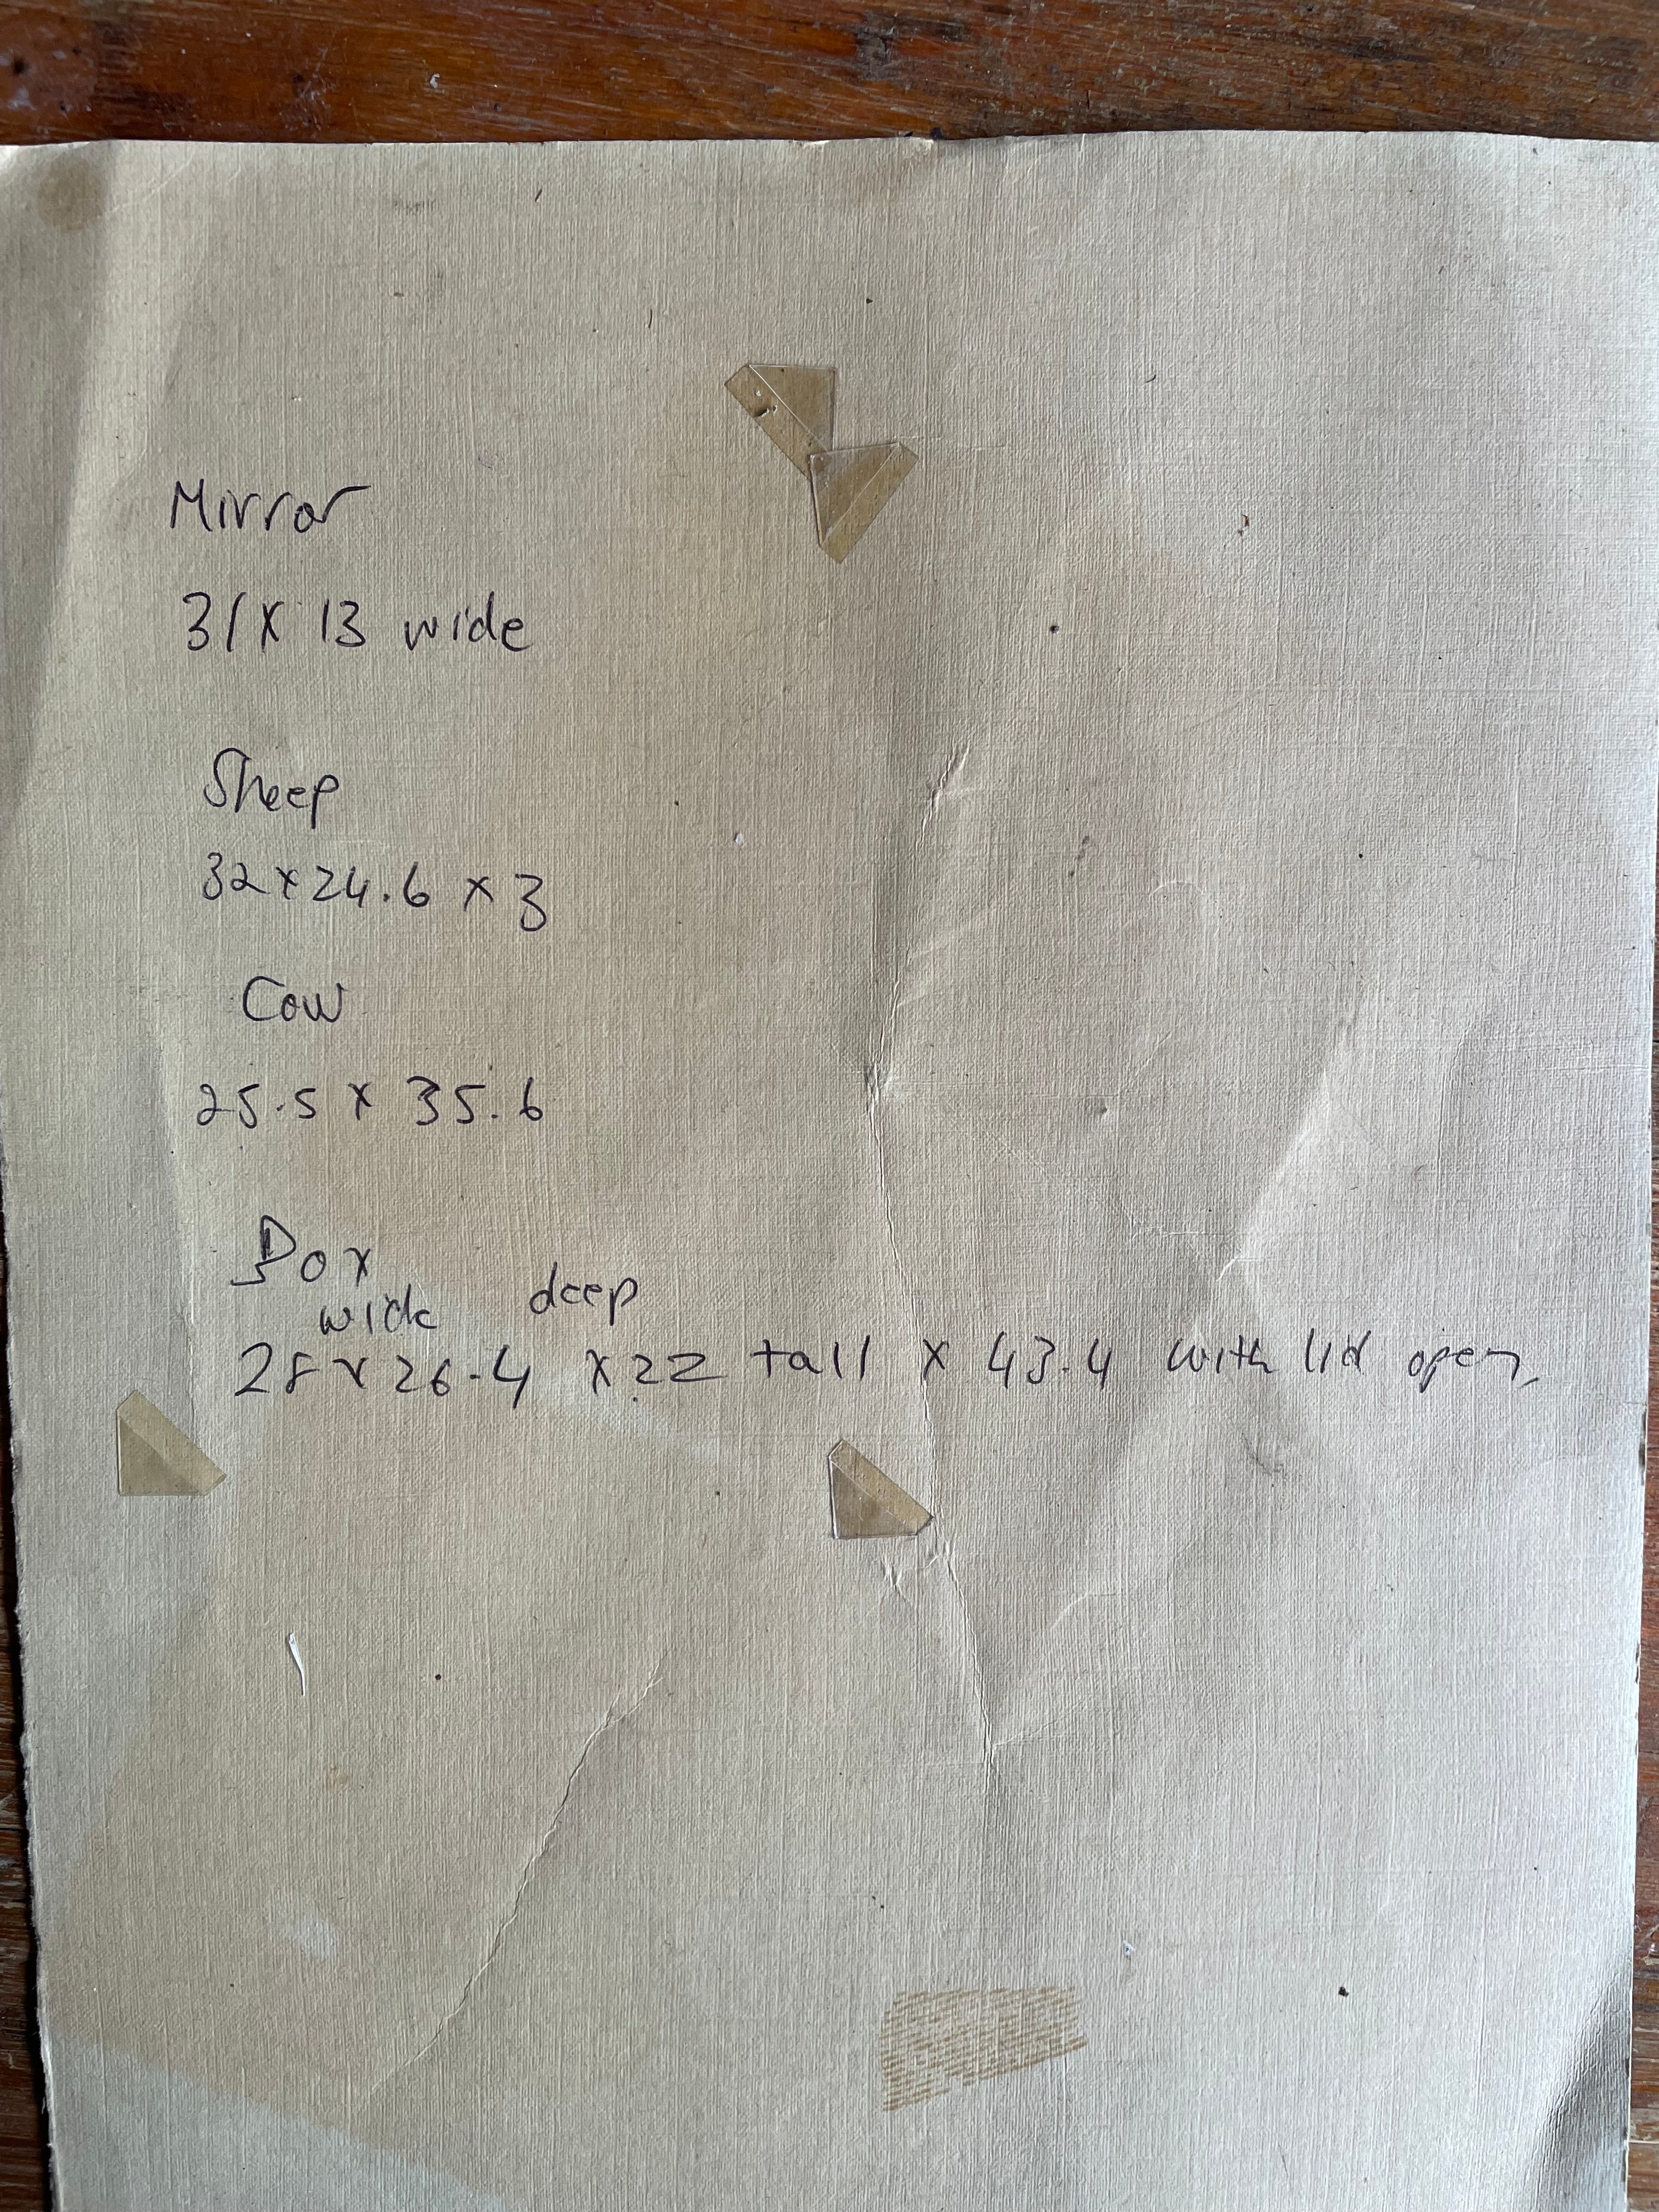 Mirror
31 x 13 wide
Sheep
32 x 24.6 x 3
Cow
25.5 x 35.6
Box
wide deep
28 x 26.4 x 22 tall x 43.4 with lid open